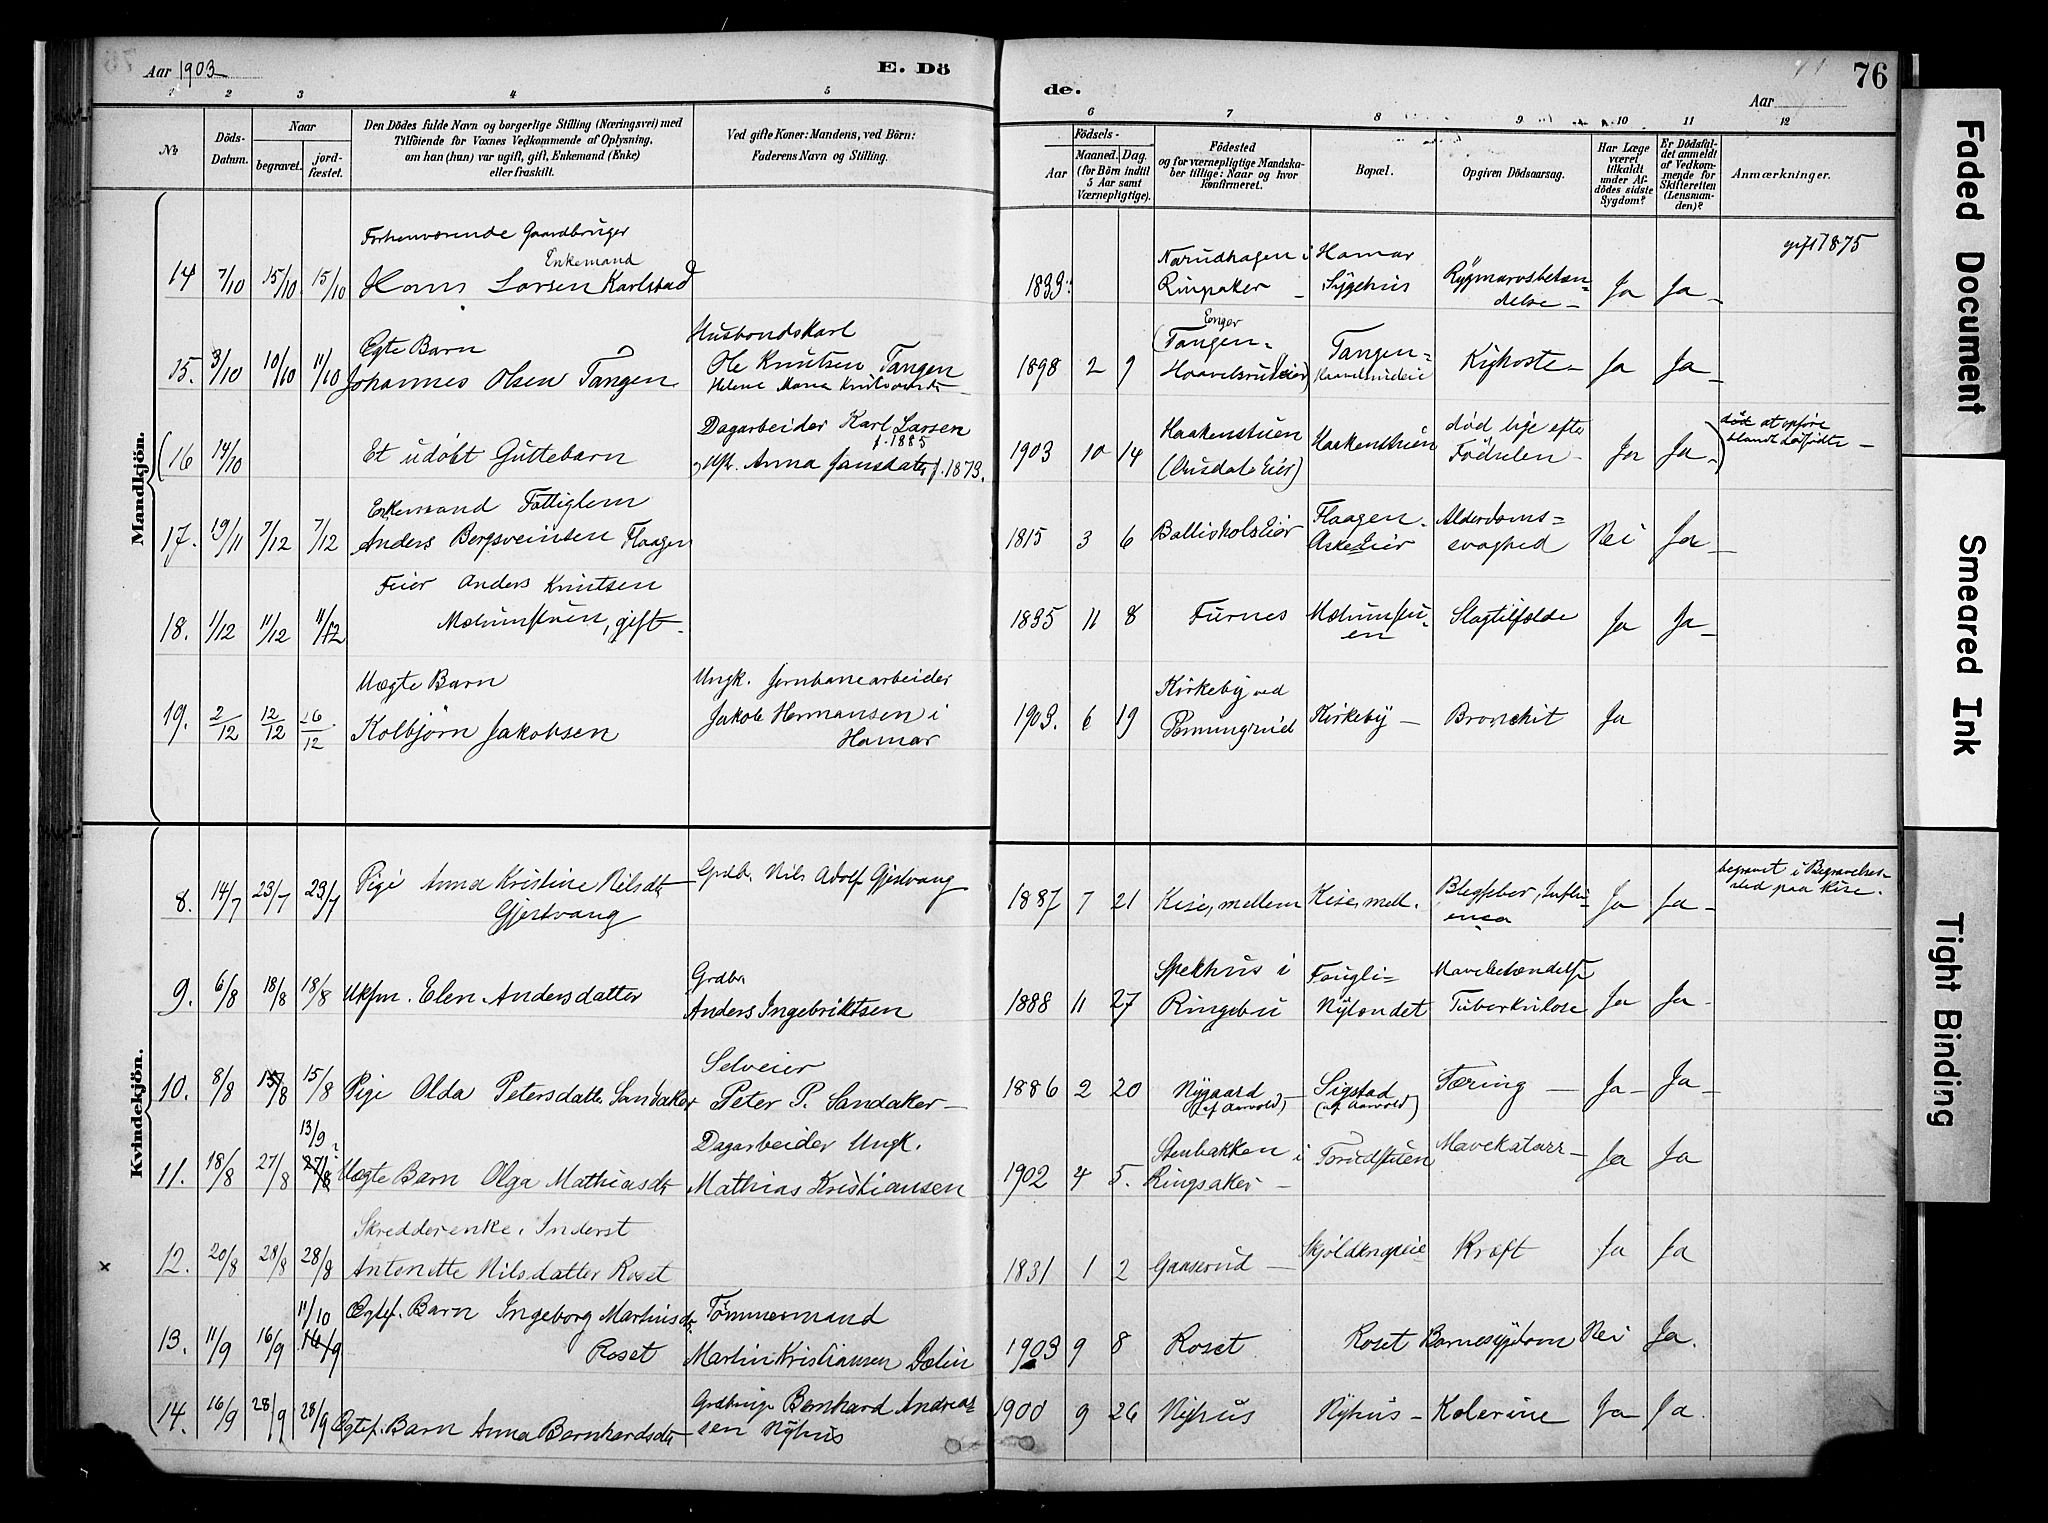 Aar 1903
E. Dö
de.
Aar
76
1 2 3 4 5
6 7 8 9 10 11 12
No
Döds-Datum.
Naar
begravet.
jord-fæstet.
Den Dödes fulde Navn og borgerlige Stilling (Næringsvei) med
Tilföiende for Voxnes Vedkommende af Oplysning,
om han (hun) var ugift, gift, Enkemand (Enke)
eller fraskilt.
Ved gifte Koner: Mandens, ved Börn:
Faderens Navn og Stilling.
Födsels-
Aar
Maaned.
Dag.
(for Börn indtil
5 Aar samt
Værnepligtige).
Födested
og for værnepligtige Mandska-
ber tillige: Naar og hvor
Konfirmeret.
Bopæl.
Opgiven Dödsaarsag.
Har Læge
været
tilkaldt
under Af-
dödes sidste
Sygdom?
Er Dödsfal-
det anmeldt
af Vedkom-
mende for
Skifteretten
(Lensman-
den)?
Anmærkninger.
Mandkjön.
Forhenværende Gaardbruger
Enkemand
14 7/10 15/10 15/10 Hans Larsen Karlstad
1833
Narudhagen i
Ringsaker
Hamar
Sygehus
Rygmarvsbetæn=
delse
Ja Ja
gift 1875
Egte Barn
15. 3/10 10/10 11/10 Johannes Olsen Tangen
Husbondskarl
Ole Knutsen Tangen
Helene Maria
1898 2 9
Enger
(Tangen=
Tangen=
Kighoste
Ja Ja
(16 14/10 Et udöbt Guttebarn
Dagarbeider Karl Larsen
f. 1885
Anna Jansdatter f. 1873.
1903 10 14
Haakenstuen
Haakenstuen
död lige efter
Födselen
Ja Ja
at opföre
blandt dödfödte
Enkemand Fattiglem
17. 19/11 7/12 7/12 Anders Bergsveinsen Flaagen
1815 3 6
Flaagen
Alderdoms=
svaghed
Nei Ja
Feier Anders Knutsen
18. 1/12 11/12 11/12 Mælumstuen, gift
1835 11 8
Furnes
Mælumstu-
en
Slagtilfælde
Ja Ja
Uægte Barn
19. 2/12 12/12 16/12 Kolbjörn Jakobsen
Ungk. Jernbanearbeider
Jakob Hermansen i
Hamar
1903. 6 19
Kirkeby ved
Kirkeby
Bronchit
Ja
Kvindekjön.
8. 14/7 23/7 23/7 Pige Anna Kristine Nilsdt
Gjestvang
Grdb. Nils Adolf Gjestvang
1887 7 21
Kise, mellem
Kise, mell.
Blegfeber, Influ-
enza
Ja Ja
begravet i Begravelses-
sted paa Kise.
9. 6/8 18/8 18/8 Ukfm. Elen Andersdatter
Grdbr
Anders Ingebriktsen
1888 11 27
Spekhus i
Ringebu
Faugli=
Nylandet
Mavebetændelse
Tuberkulose
Ja Ja
10. 8/8 15/8 15/8 Pige Olda Petersdatter Sandaker
Selveier
Peter P. Sandaker
1886 2 20
Nygaard
(af Aarvold)
Sigstad
(af Aarvold)
Tæring
Ja Ja
13/9
11. 18/8 27/8 27/8 Uægte Barn Olga Mathiasdt
Dagarbeider Ungk.
Mathias Kristiansen
1902 4 5.
Stenbakken i
Ringsaker
Torudstuen
Mavekatarr
Ja Ja
Skredderenke, Inderst
x 12. 20/8 28/8 28/8 Antonette Nilsdatter Roset
1831 1 2
Gaaserud
Kræft
Ja Ja
11/10
13. 11/9 16/9 16/9 Egtef. Barn Ingeborg Martinsdt.
Roset
Tömmermand
Martin Kristiansen Dælin
1903 9 8
Roset
Roset
Barnesygdom
Nei Ja.
14. 16/9 28/9 28/9 Egtef. Barn Anna Bernhardsdt
Grdbruger Bernhard Andreas-
sen Nyhus
1900 9 26
Nyhus
Nyhus
Kolerine
Ja Ja.
Faded Document
Smeared Ink
Tight Binding